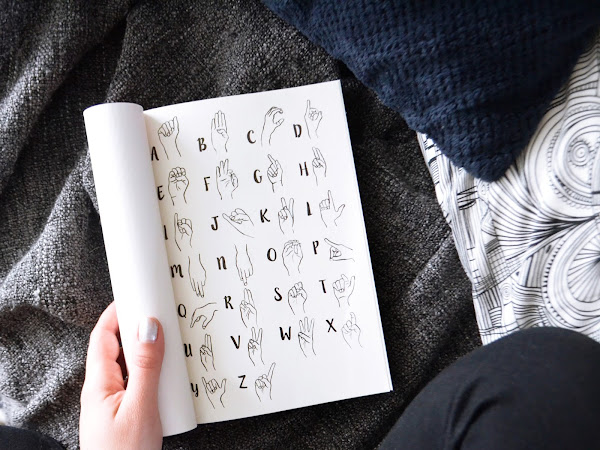 A B C D
E F G H
I J K L
m n O P
Q R S T
U V W X
y Z